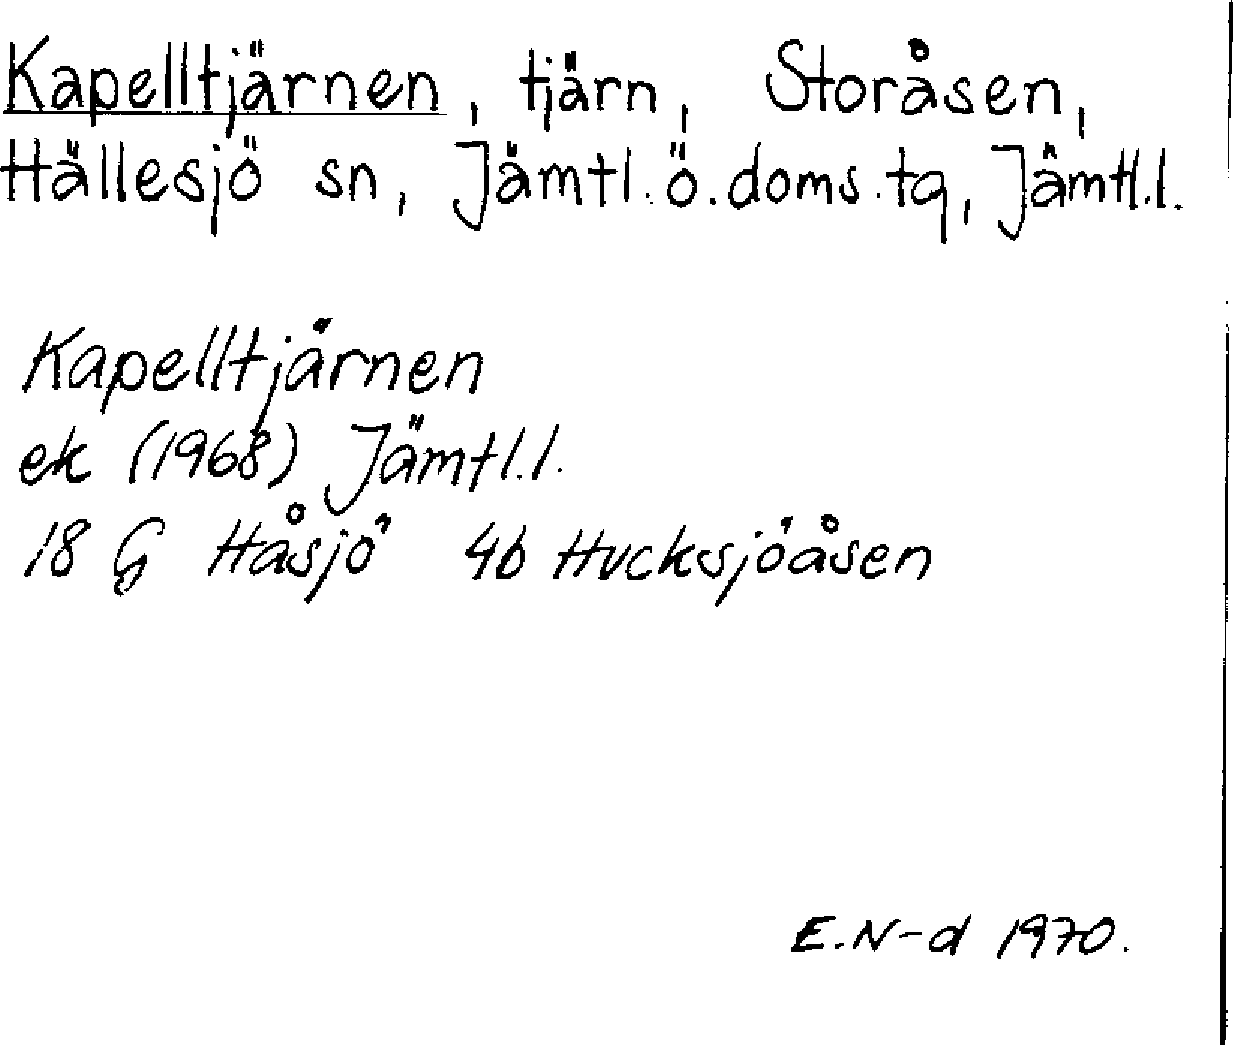 Kapelltjärnen, tjärn, Storåsen,
Hällesjö sn, Jämtl.ö.doms.tg, Jämtl.l.
Kapelltjärnen
ek (1968) Jämtl.l.
18 G Håsjö 4b Hucksjöåsen
E.N-d 1970.